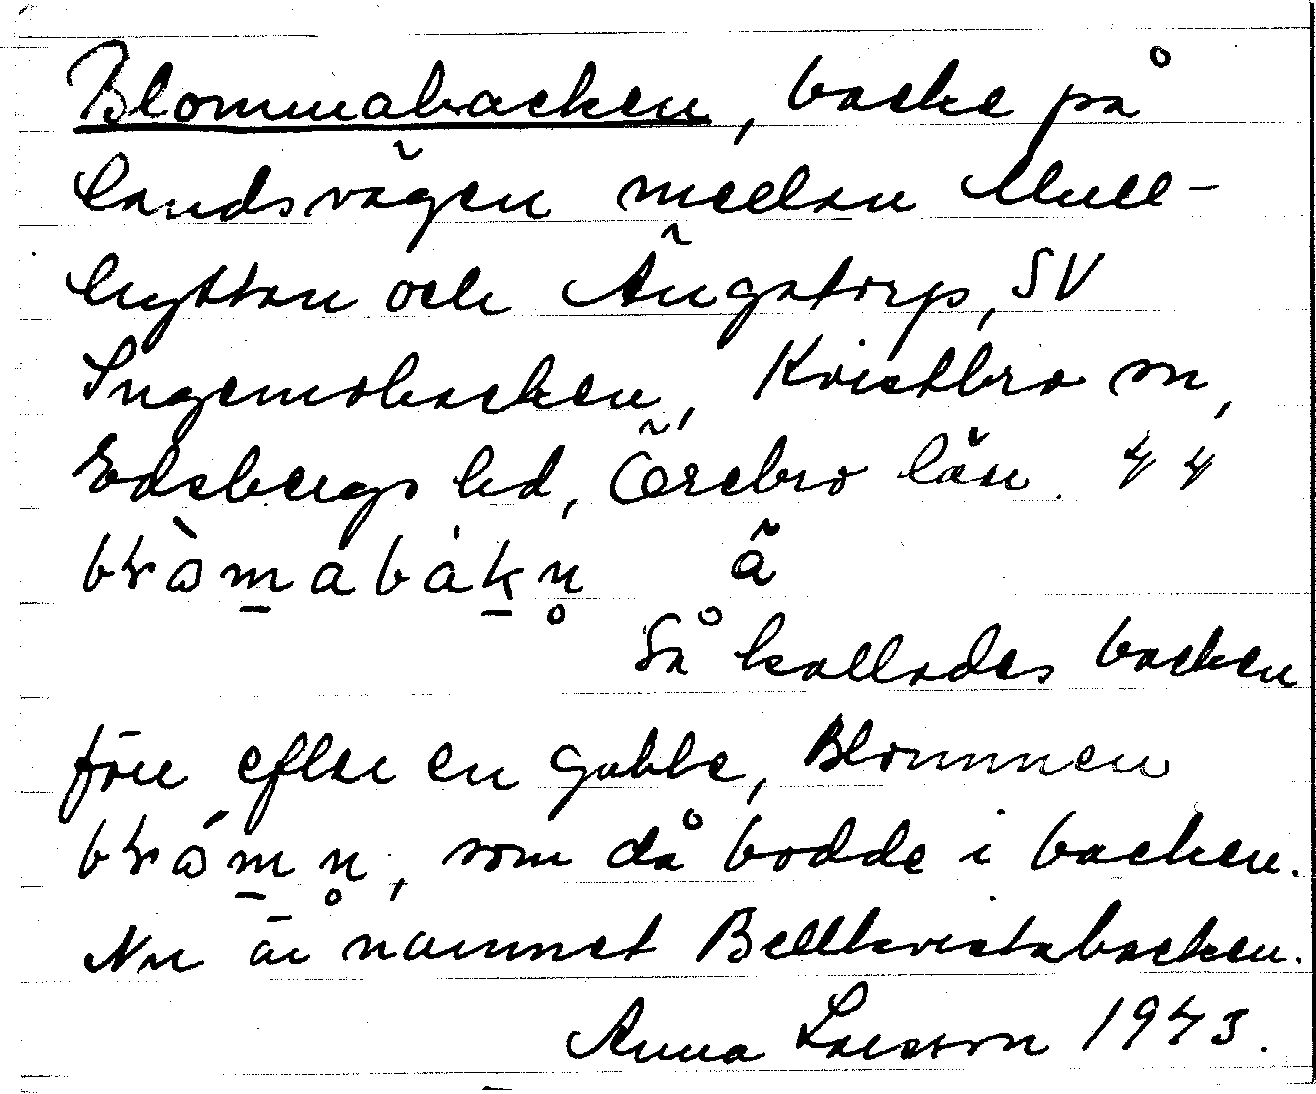 Blommabacken, backe på
landsvägen mellan Mull-
hyttan och Ängatorp, SV
Ingemobacken, Kvistbro sn,
Edsbergs hd, Örebro län. 44
ä
Så kallades backen
förr efter en gubbe, Blommen
som då bodde i backen.
Nu är namnet Bellkvistabacken.
Anna Larsson 1943.